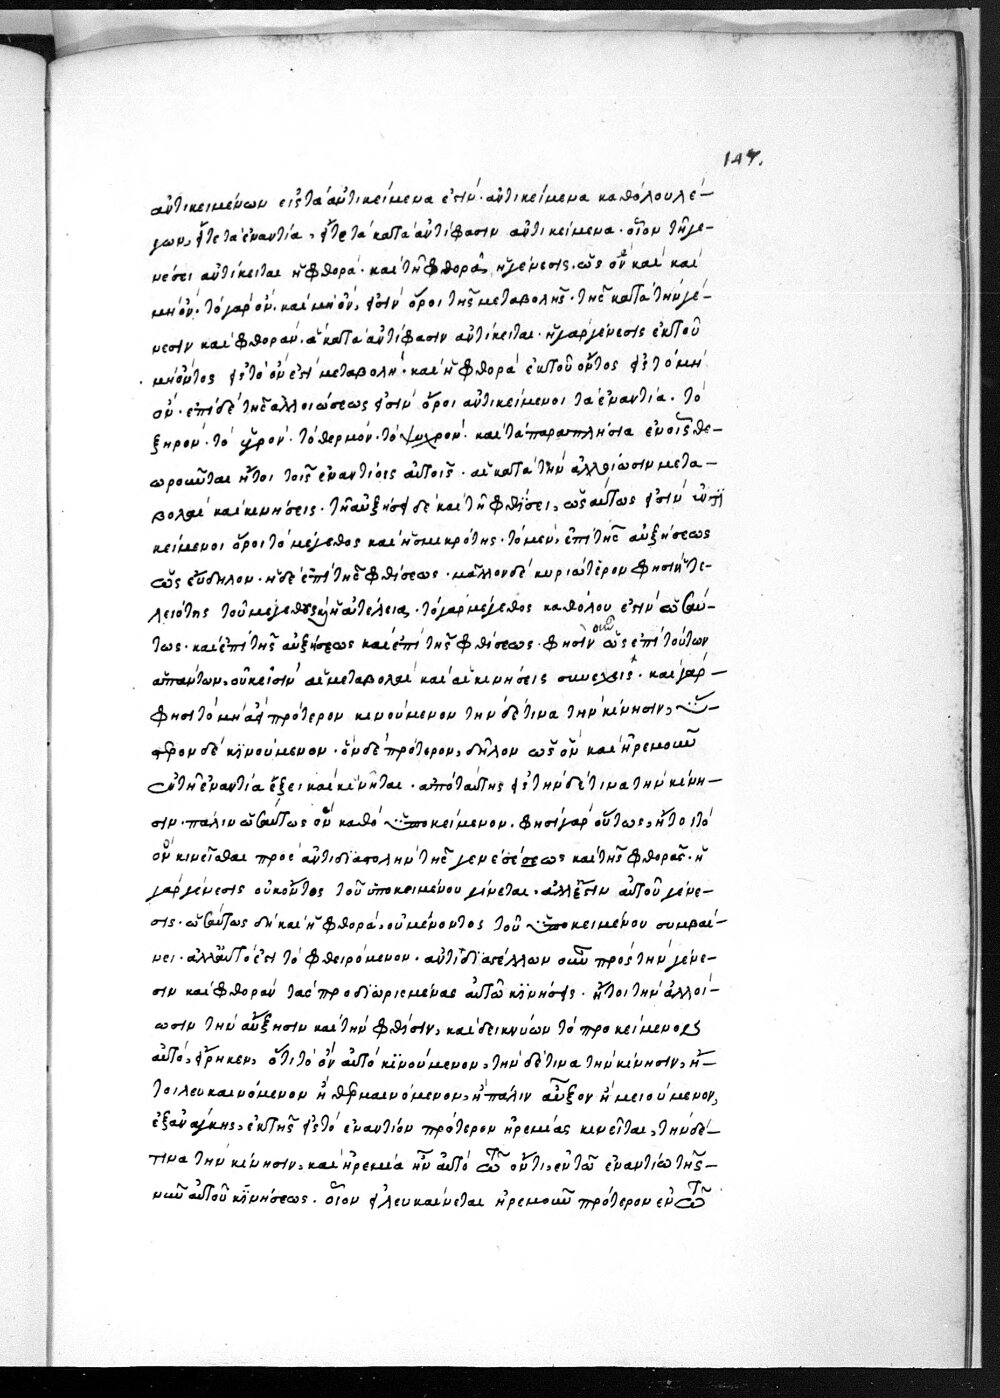 147.
ἀντικειμένων εἰς τὰ ἀντικείμενα ἐστίν· ἀντικείμενα καθόλου λέ-
γων, εἴτε τὰ ἐναντία, εἴτε τὰ κατὰ ἀντίφασιν ἀντικείμενα· οἷον τῇ γε-
νέσει ἀντίκειται ἡ φθορά· καὶ τῇ φθορᾷ, ἡ γένεσις· ὡς ὂν καὶ καὶ
μὴ ὄν· τὸ γὰρ ὄν, καὶ μὴ ὄν, εἰσὶν ὅροι τῆς μεταβολῆς· τῆς κατὰ τὴν γέ-
νεσιν καὶ φθοράν· ἃ κατὰ ἀντίφασιν ἀντίκειται· ἡ γὰρ γένεσις ἐκ τοῦ
μὴ ὄντος εἰς τὸ ὄν ἐστι μεταβολή· καὶ ἡ φθορὰ ἐκ τοῦ ὄντος εἰς τὸ μὴ
ὄν· ἐπὶ δὲ τῆς ἀλλοιώσεως εἰσὶν ὅροι ἀντικείμενοι τὰ ἐναντία· τὸ
ξηρόν· τὸ ὑγρόν· τὸ θερμόν· τὸ ψυχρόν· καὶ τὰ παραπλήσια ἐν οἷς θε-
ωροῦνται ἤτοι τοῖς ἐναντίοις αὐτοῖς· αἱ κατὰ τὴν ἀλλοίωσιν μετα-
βολαὶ καὶ κινήσεις· τῇ αὐξήσει δὲ καὶ τῇ φθίσει, ὡσαύτως εἰσὶν ἀντι
κείμενοι ὅροι τὸ μέγεθος καὶ ἡ σμικρότης· τὸ μὲν, ἐπὶ τῆς αὐξήσεως
ὡς εὔδηλον· ἡ δὲ ἐπὶ τῆς φθίσεως· μᾶλλον δὲ κυριώτερον φησὶν ἡ τε-
λειότης τοῦ μεγέθους καὶ ἡ ἀτέλεια· τὸ γὰρ μέγεθος καθόλου ἐστὶν ὡσαύ-
τως· καὶ ἐπὶ τῆς αὐξήσεως καὶ ἐπὶ τῆς φθίσεως· φησὶν οὖν ὡς ἐπὶ τούτων
ἁπάντων, οὐκ εἰσὶν αἱ μεταβολαὶ καὶ αἱ κινήσεις συνεχεῖς· καὶ γάρ
φησι τὸ μὴ ἀεὶ πρότερον κινούμενον τὴν δέ τινα τὴν κίνησιν, ὕσ-
τερον δὲ κινούμενον· ὂν δὲ πρότερον, δῆλον ὡς ὂν καὶ ἠρεμοῦν
ἐν τῇ ἐναντίᾳ ἕξει καὶ κινῆται· ἀπὸ ταύτης εἰς τὴν δέ τινα τὴν κίνη-
σιν· πάλιν ὡσαύτως ὂν καθὸ ὑποκείμενον· φησὶ γὰρ οὕτως, ἤτοι τὸ
ὂν κινεῖσθαι πρὸς ἀντιδιαστολὴν τῆς γενέσεως καὶ τῆς φθορᾶς· ἡ
γὰρ γένεσις οὐκ ὄντος τοῦ ὑποκειμένου γίνεται, ἀλλ' ἔστιν αὐτοῦ γένε-
σις· ὡσαύτως δὴ καὶ ἡ φθορὰ, οὐ μένοντος τοῦ ὑποκειμένου συμβαί-
νει· ἀλλ' αὐτό ἐστι τὸ φθειρόμενον· ἀντιδιαστέλλων οὖν πρὸς τὴν γένε-
σιν καὶ φθορὰν τὰς προδιωρισμένας αὐτῷ κινήσεις· ἤτοι τὴν ἀλλοί-
ωσιν τὴν αὔξησιν καὶ τὴν φθίσιν, καὶ δεικνύων τὸ προκείμενον
αὐτὸ, εἴρηκεν, ὅτι τὸ ὂν αὐτὸ κινούμενον, τὴν δέ τινα τὴν κίνησιν, ἤ-
τοι λευκαινόμενον ἢ θερμαινόμενον, ἢ πάλιν αὖξον ἢ μειούμενον,
ἐξ ἀνάγκης, ἐκ τῆς εἰς τὸ ἐναντίον πρότερον ἠρεμίας κινεῖται, τὴν δέ-
τινα τὴν κίνησιν, καὶ ἠρεμία ἦν αὐτὸ τῷ ὄντι, ἐν τῷ ἐναντίῳ τῆς
νῦν αὐτοῦ κινήσεως· οἷον εἰ λευκαίνεται ἠρεμοῦν πρότερον ἐν τῷ